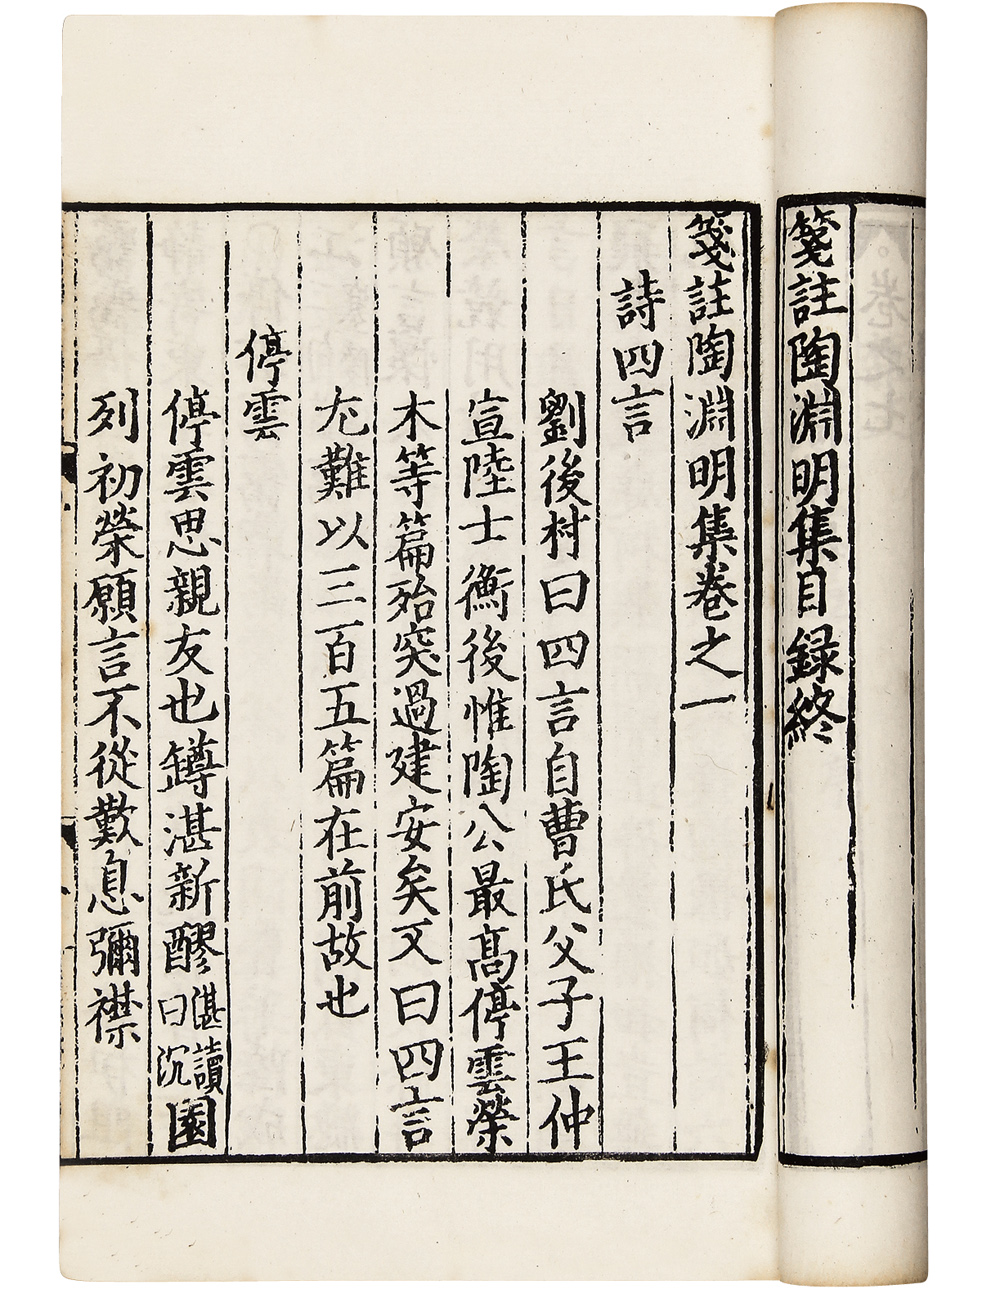 箋註陶淵明集目録終
箋註陶淵明集卷之一
詩四言
劉後村曰四言自曹氏父子王仲
宣陸士衡後惟陶公最高停雲榮
木等篇殆突過建安矣又曰四言
尤難以三百五篇在前故也
停雲
停雲思親友也罇湛新醪湛讀曰沉園
列初榮願言不從歎息彌襟